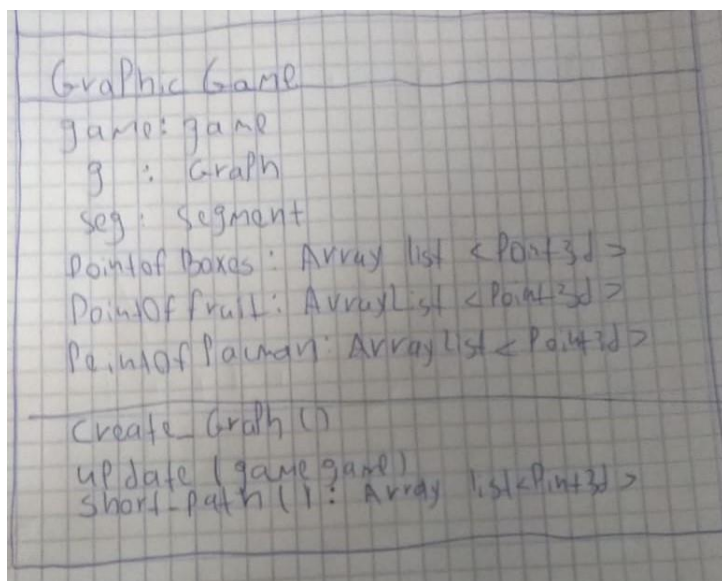 Graphic Game
game: game
g : Graph
seg: segment
Pointof Boxes: Array list <Point3d>
PointOf fruit: ArrayList <Point3d>
PointOf Pacman: ArrayList <Point3d>
Create_Graph ()
update (game game)
Short_path (): Array list<Pint3d>